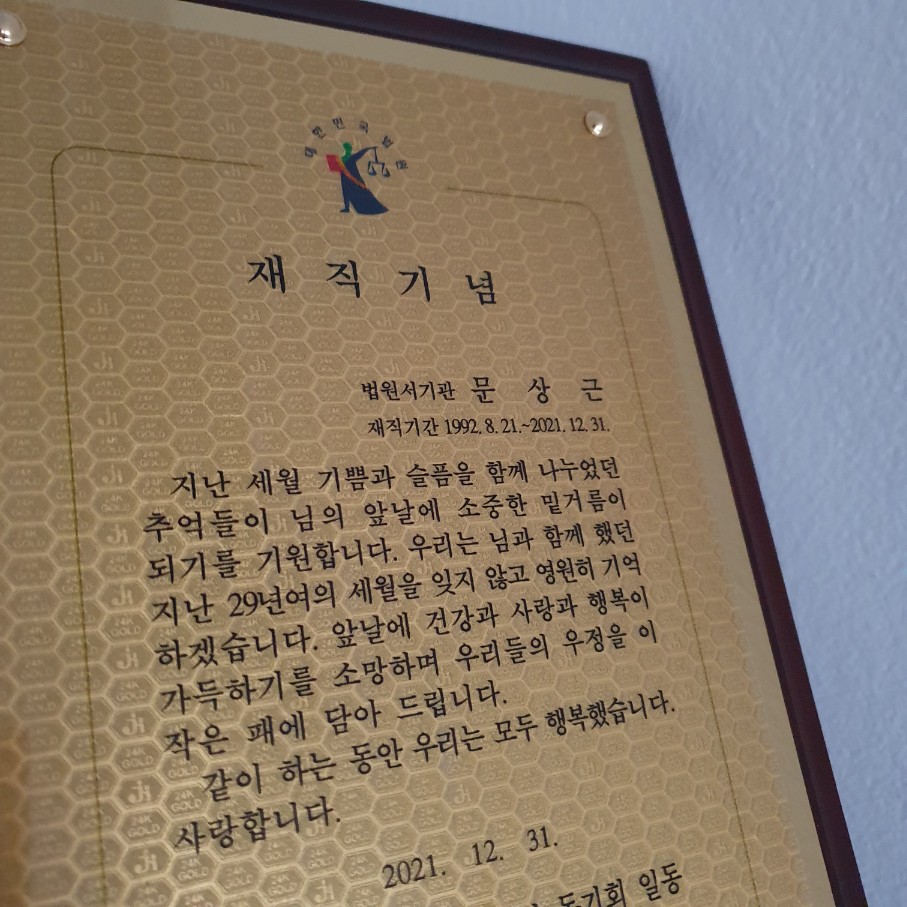 대한민국법원
재직기념
법원서기관 문 상 근
재직기간 1992. 8. 21.~2021. 12. 31.
지난 세월 기쁨과 슬픔을 함께 나누었던
추억들이 님의 앞날에 소중한 밑거름이
되기를 기원합니다. 우리는 님과 함께 했던
지난 29년여의 세월을 잊지 않고 영원히 기억
하겠습니다. 앞날에 건강과 사랑과 행복이
가득하기를 소망하며 우리들의 우정을 이
작은 패에 담아 드립니다.
같이 하는 동안 우리는 모두 행복했습니다.
사랑합니다.
2021. 12. 31.
동기회 일동